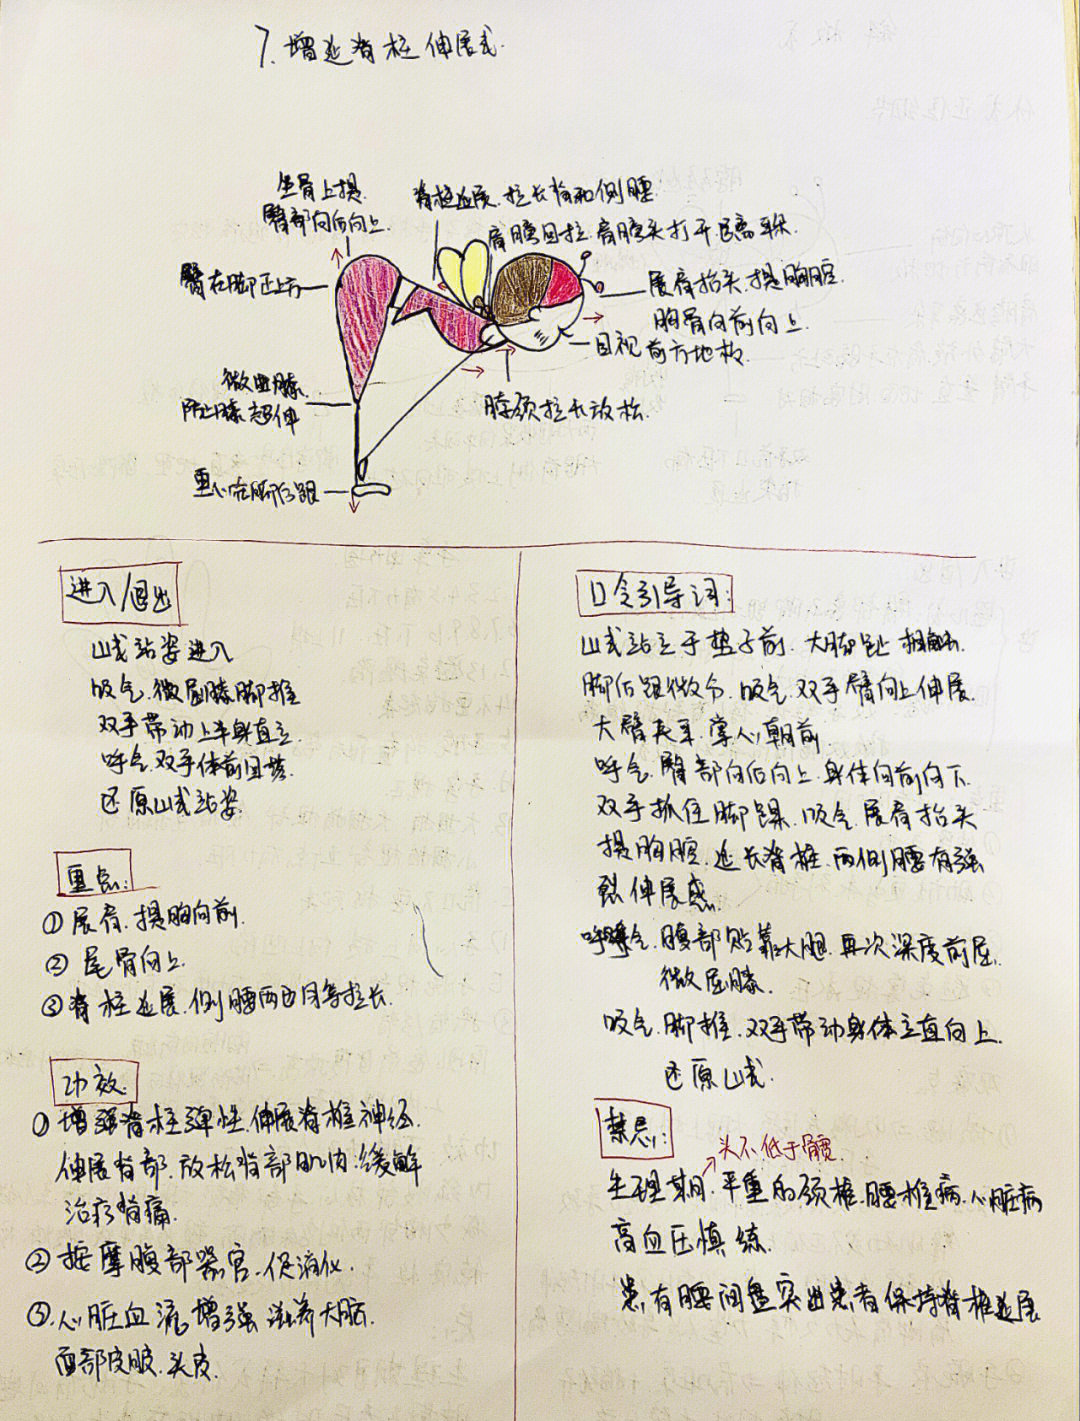 7. 增延脊柱伸展式.
坐骨上提.
臀部向后向上.
脊柱延展.拉长背和侧腰
肩膀回拉.肩膀头打开.远离耳朵.
臀在脚正上方
展肩抬头.提胸腔.
胸骨向前向上.
目视前方地板
微曲膝.
防止膝超伸
脖颈拉长放松.
重心在脚后跟
进入/退出
山式站姿进入
吸气.微屈膝脚推
双手带动上半身直立.
呼气.双手体前回落.
还原山式站姿.
重点:
①展肩.提胸向前.
②尾骨向上.
③脊柱延展.侧腰两边同等拉长.
功效.
①增强脊柱弹性.伸展脊椎神经.
伸展背部.放松背部肌肉.缓解
治疗背痛.
②按摩腹部器官.促消化.
③心脏血流增强 滋养大脑.
面部皮肤.头皮.
口令引导词:
山式站立于垫子前.大脚趾相触.
脚后跟微分.吸气.双手臂向上伸展.
大臂夹耳.掌心朝前.
呼气.臀部向后向上.身体向前向下.
双手抓住脚踝.吸气.展肩抬头
提胸腔.延长脊椎.两侧腰有强
烈伸展感.
呼气.腹部贴靠大腿.再次深度前屈.
微屈膝.
吸气.脚推.双手带动身体立直向上.
还原山式.
禁忌:
头不低于髋.
生理期.严重的颈椎.腰椎病.心脏病
高血压慎练.
患有腰间盘突出患者保持脊椎延展